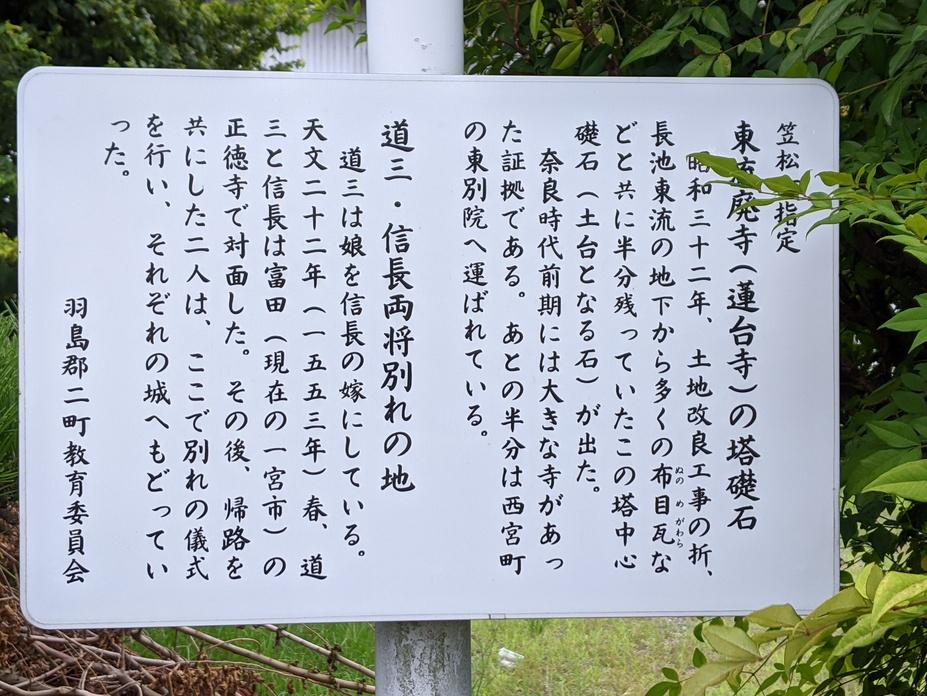 笠松 指定
東 廃寺(蓮台寺)の塔礎石
昭和三十二年、土地改良工事の折、
長池東流の地下から多くの布目瓦な
ぬの め がわら
どと共に半分残っていたこの塔中心
礎石(土台となる石)が出た。
奈良時代前期には大きな寺があっ
た証拠である。あとの半分は西宮町
の東別院へ運ばれている。
道三・信長両将別れの地
道三は娘を信長の嫁にしている。
天文二十二年(一五五三年)春、道
三と信長は富田(現在の一宮市)の
正徳寺で対面した。その後、帰路を
共にした二人は、ここで別れの儀式
を行い、それぞれの城へもどってい
った。
羽島郡二町教育委員会